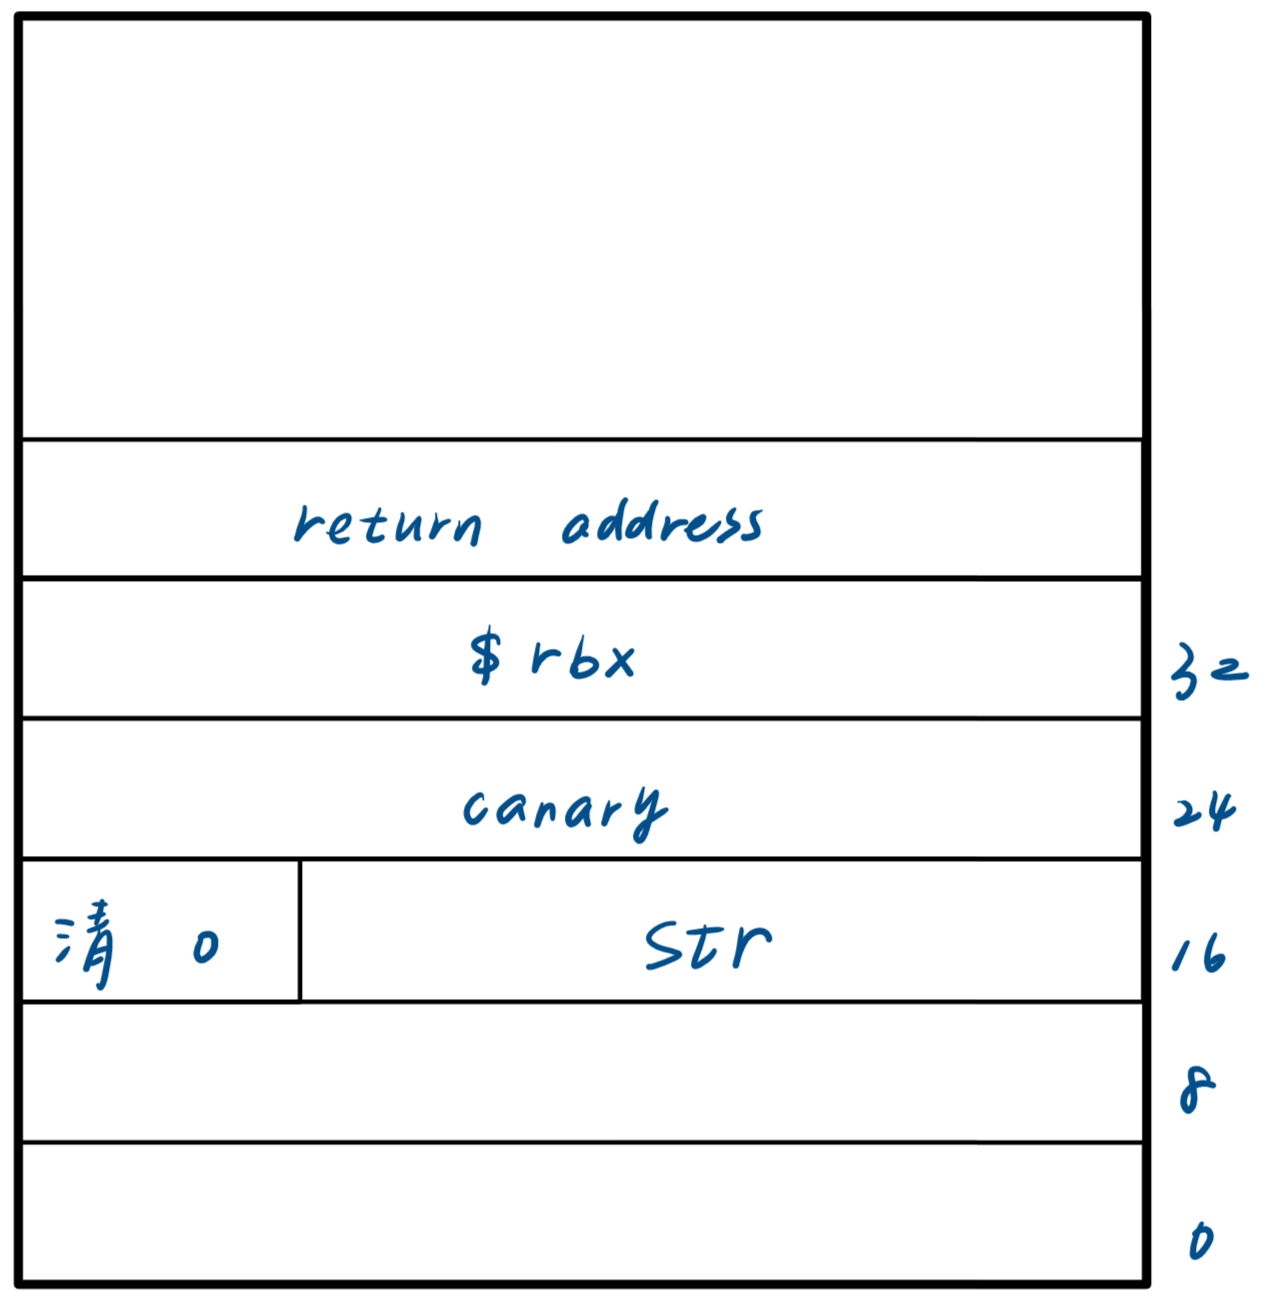 return address
$ rbx 32
canary 24
清 0 str 16
8
0